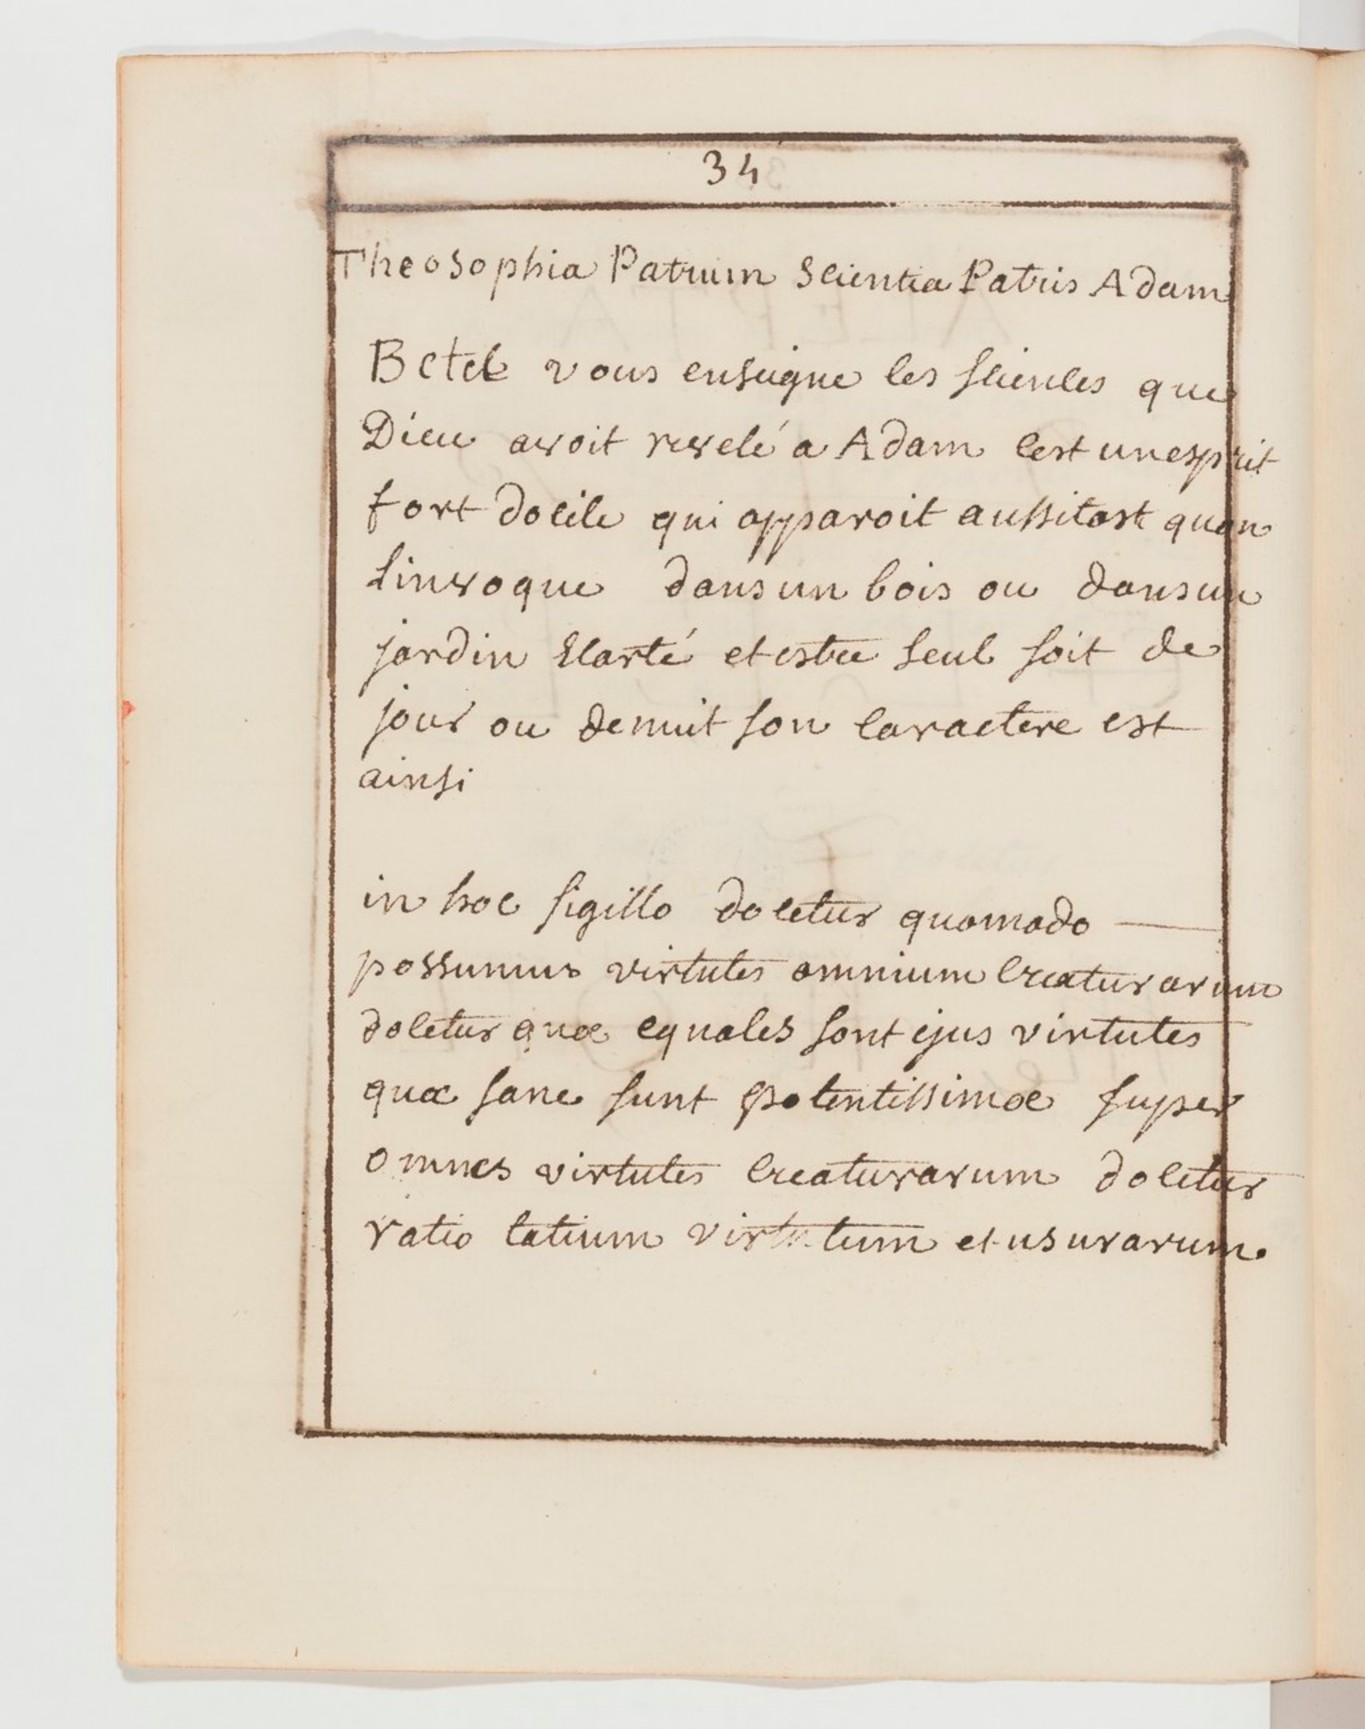 34
Theosophia Patrum Scientia Patris Adam
Betel vous enseigne les sciences que
Dieu avoit revelé a Adam cest un esprit
fort docile qui apparoit aussitost quon
linvoque dans un bois ou dans un
jardin Ecarté et estre seul soit de
jour ou de nuit son caractere est
ainsi
in hoc sigillo docetur quomodo
possumus virtutes omnium creaturarum
docetur quæ equales sont ejus virtutes
quæ sane sunt potentissimæ super
omnes virtutes creaturarum docetur
ratio tatium virtutum et usurarum.